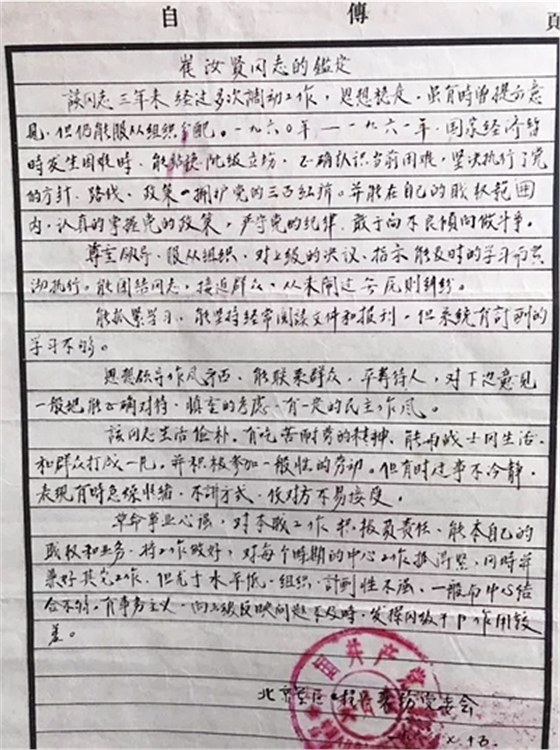 自 傳 頁
崔汝贤同志的鑑定
該同志三年来经过多次調动工作,思想稳定,虽有时曾提示意
見,但仍能服从组织分配。一九六〇年—一九六一年,国家经济暂
时发生困难时,能站稳阶级立场,正确认识当前困难,坚决执行了党
的方針、路线、政策,拥护党的三面红旗。并能在自己的职权範围
内,认真的掌握党的政策,严守党的纪律,敢于向不良傾向做斗争。
尊重领导,服从组织,对上级的决议、指示能及时的学习
彻执行。能团结同志,接近群众,从未闹过无原则糾纷。
能抓紧学习,能坚持经常阅读文件和报刊,但系统有計劃的
学习不够。
思想领导作风,能联系群众,平等待人,对下边意见
一般地能正确对待,慎重的考虑,有一定的民主作风。
該同志生活俭朴,有吃苦耐劳的精神,能和战士同生活,
和群众打成一片,并积极参加一般性的劳动。但有时过事不冷静,
表现有时急燥性绪,不讲方式,使对方不易接受。
革命事业心强,对本职工作积极負责任,能本自己的
职权和业务,将工作做好,对每个时期的中心工作抓得紧,同时并
兼好其它工作,但尤于水平低,组织、計劃性不强,一般和中心结
合不够。有事务主义,向上级反映问题不及时,发揮作用较
差。
共产党
北京 委会